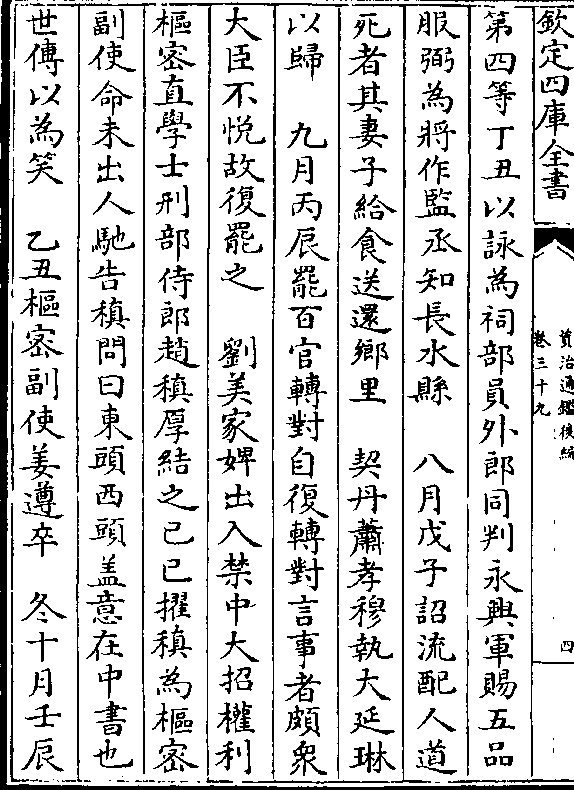 欽定四庫全書
資治通鑑後編
卷三十九
四
第四等丁丑以詠為祠部員外郎同判永興軍賜五品
服弼為將作監丞知長水縣　八月戊子詔流配人道
死者其妻子給食送還鄉里　契丹蕭孝穆執大延琳
以歸　九月丙辰罷百官轉對自復轉對言事者頗衆
大臣不悦故復罷之　劉美家婢出入禁中大招權利
樞密直學士刑部侍郎趙稹厚結之己巳擢稹為樞密
副使命未出人馳告稹問曰東頭西頭盖意在中書也
世傳以為笑　乙丑樞密副使姜遵卒　冬十月壬辰